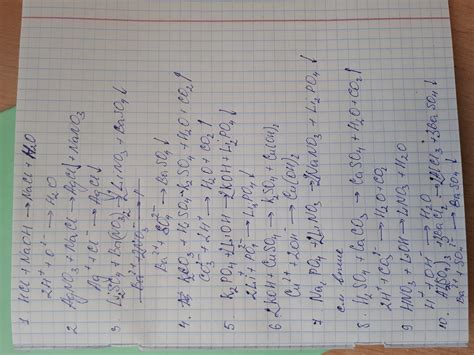 1 HCl + NaOH → NaCl + H₂O
2H⁺ + O²⁻ → H₂O
2 AgNO₃ + NaCl → AgCl↓ + NaNO₃
Ag⁺ + Cl⁻ → AgCl↓
3. Li₂SO₄ + Ba(NO₃)₂ → 2LiNO₃ + BaSO₄↓
Ba²⁺ + SO₄²⁻ → BaSO₄↓
4. K₂CO₃ + H₂SO₄ → K₂SO₄ + H₂O + CO₂↑
CO₃²⁻ + 2H⁺ → H₂O + CO₂↑
5. K₃PO₄ + 3LiOH → 3KOH + Li₃PO₄↓
3Li⁺ + PO₄³⁻ → Li₃PO₄↓
6 2KOH + CuSO₄ → K₂SO₄ + Cu(OH)₂
Cu²⁺ + 2OH⁻ → Cu(OH)₂
7 Na₃PO₄ + 3LiNO₃ → 3NaNO₃ + Li₃PO₄↓
см выше
8. H₂SO₄ + CaCO₃ → CaSO₄ + H₂O + CO₂↑
2H⁺ + CO₃²⁻ → H₂O + CO₂
9 HNO₃ + LiOH → LiNO₃ + H₂O
H⁺ + OH⁻ → H₂O
10. BaCl₂ → + 3BaSO₄↓
Ba²⁺ + SO₄²⁻ → BaSO₄↓